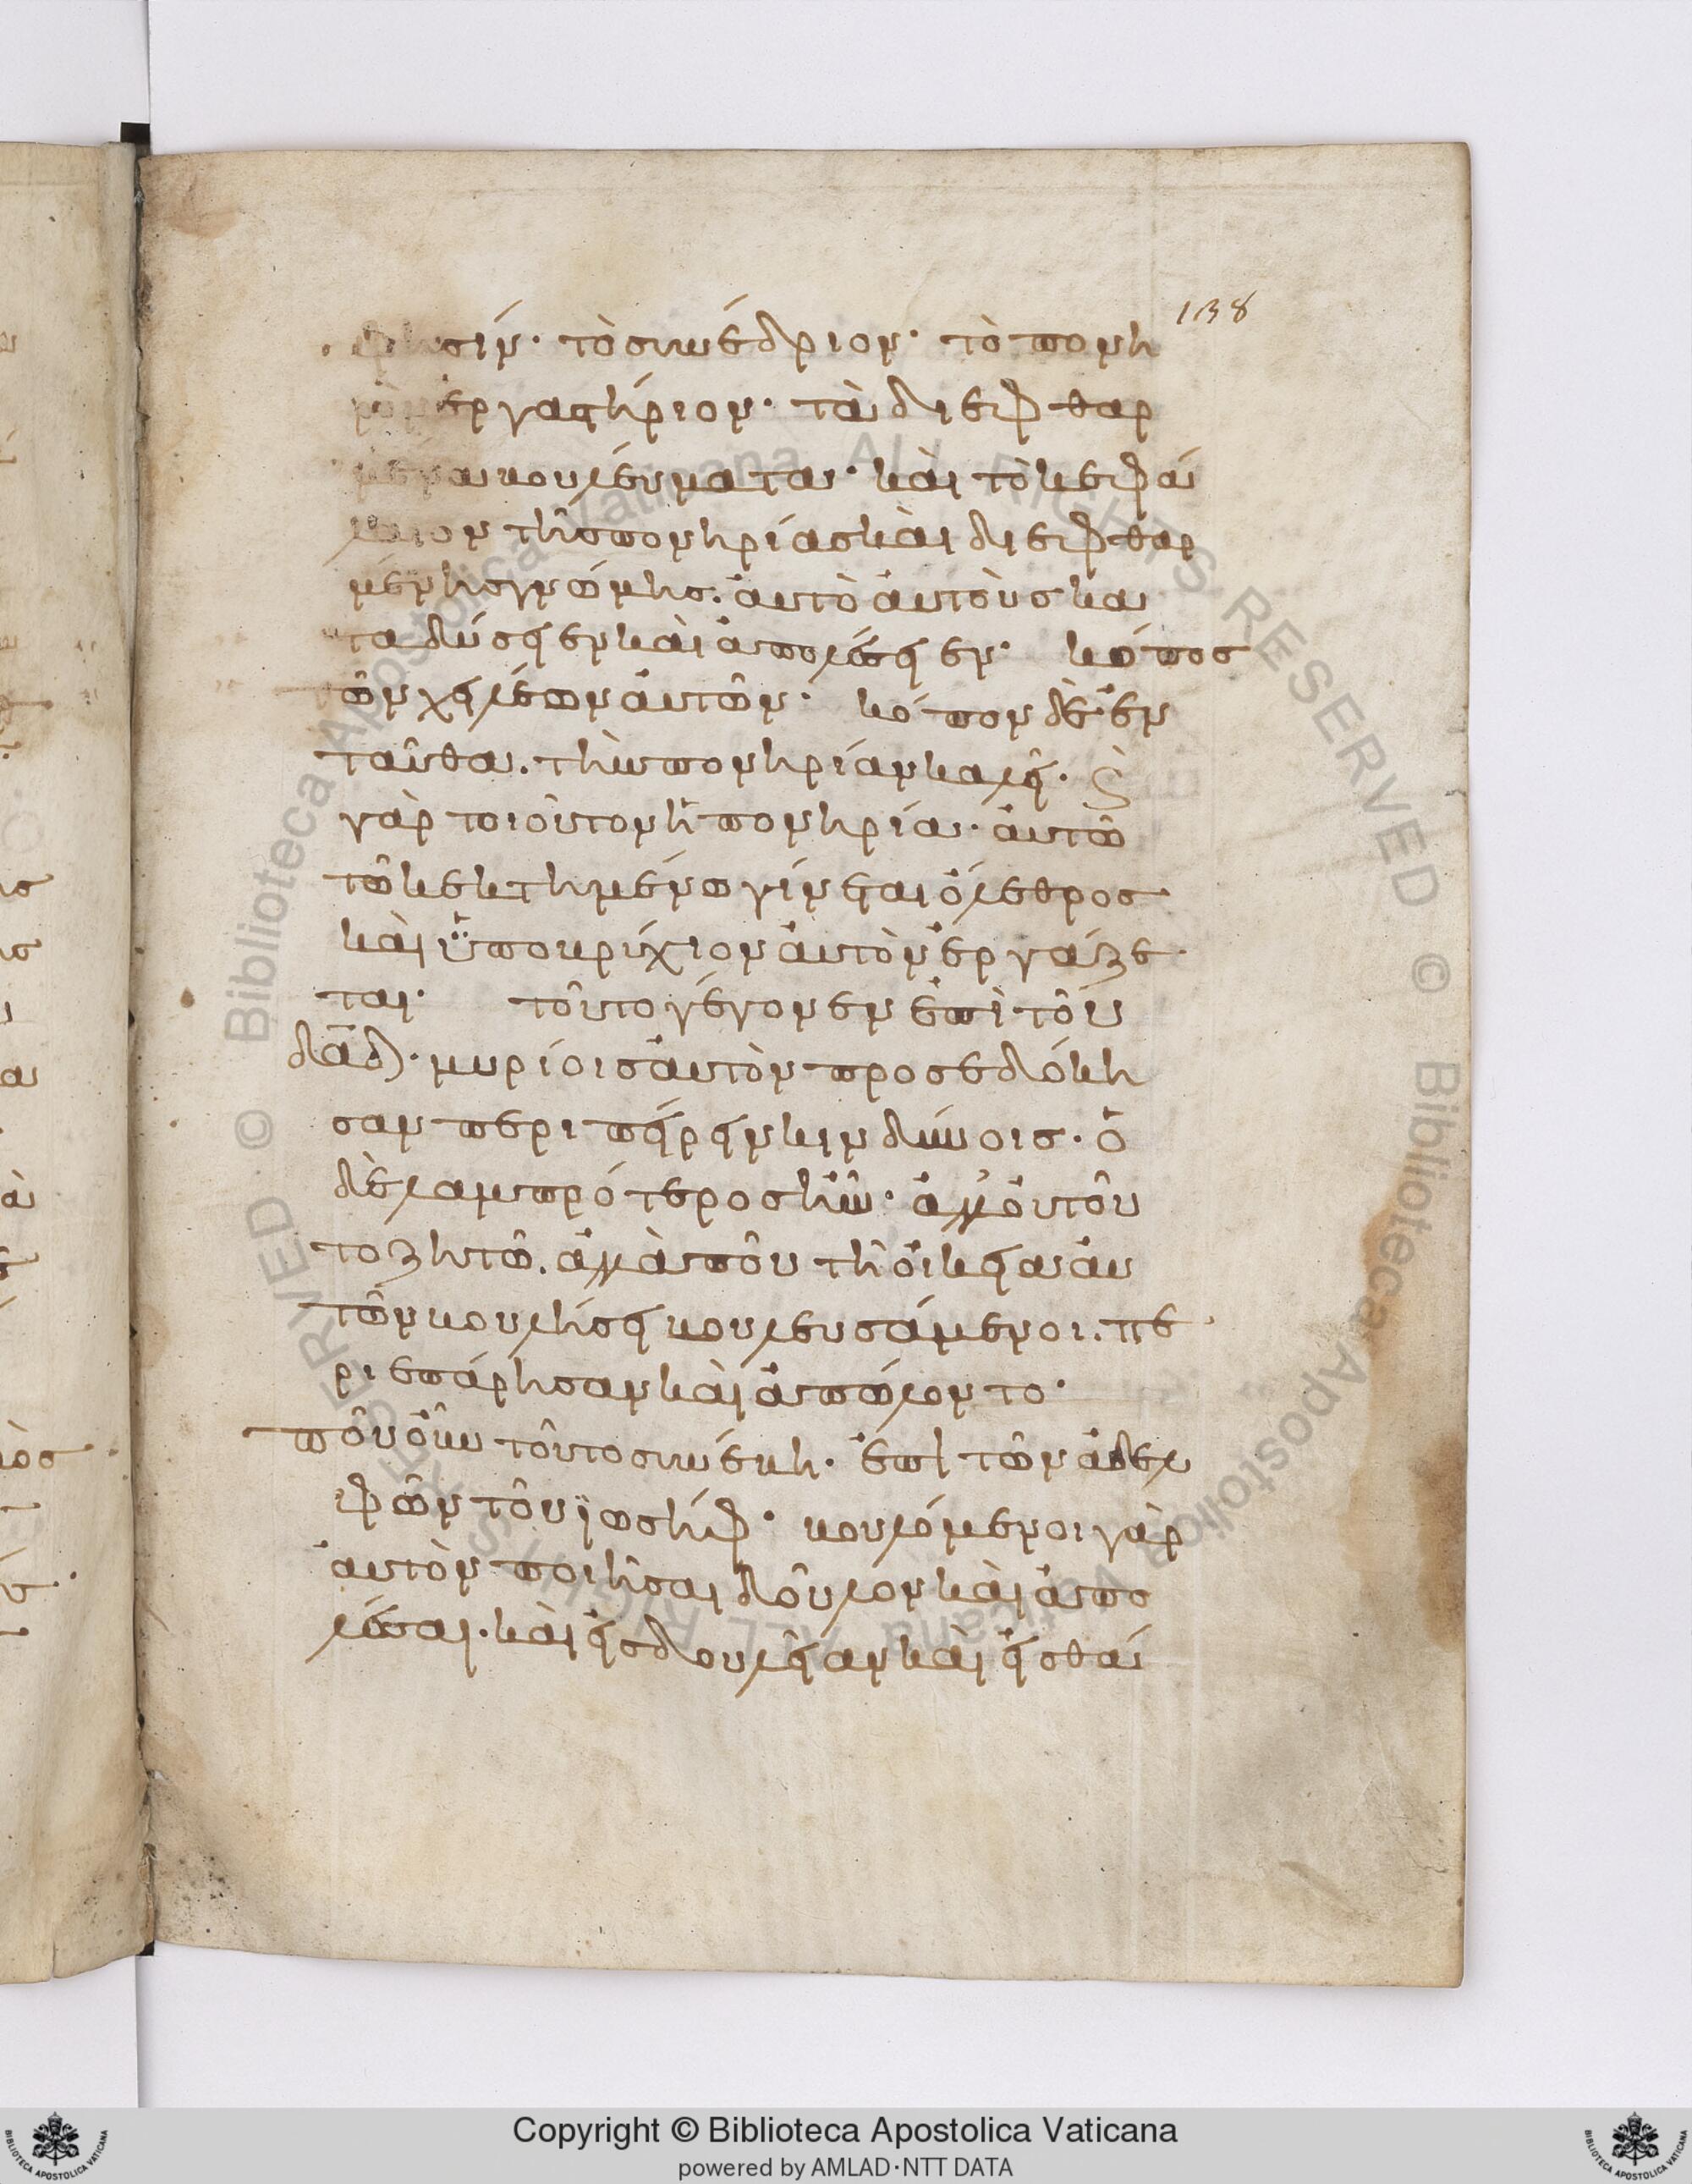 138
φησίν· τὸ συνέδριον· τὸ πονη
ρὸν ἐργαστήριον· τὰ διεφθαρ
μένα βουλεύματα· καὶ τὸ κεφά
λαιον τῆς πονηρίας καὶ διεφθαρ
μένης γνώμης· αὐτὸ αὐτοὺς κα
ταδύσειεν καὶ ἀπολέσειεν· κόπος
τῶν χειλέων αὐτῶν· κόπον δὲ ἐν
ταῦθα· τὴν πονηρίαν καλεῖ·
γὰρ τοιοῦτον ἡ πονηρία· αὐτῶ
τῶ κεκτημένω γίνεται ὄλεθρος
καὶ ὑποβρύχιον αὐτὸν ἐργάζε
ται· τοῦτο γέγονεν ἐπὶ τοῦ
δᾱδ· μυρίοις αὐτὸν προσεδόκη
σαν περιπείρειν κινδύνοις· ὁ
δὲ λαμπρότερος ἦν· ἀλλ' οὐ τοῦ
το ζητῶ· ἀλλὰ ποῦ τῆ οἰκεία αὐ
τῶν βουλήσει βουλευσάμενοι· πε
ριεπάρησαν καὶ ἀπώλοντο·
ποῦ οὖν τοῦτο συνέβη· ἐπὶ τῶν ἀδελ
φῶν τοῦ ἰωσήφ· βουλόμενοι γὰρ
αὐτὸν ποιῆσαι δοῦλον καὶ ἀπο
λέσαι· καὶ εἰς δουλείαν καὶ εἰς θά
Copyright © Biblioteca Apostolica Vaticana
powered by AMLAD·NTT DATA